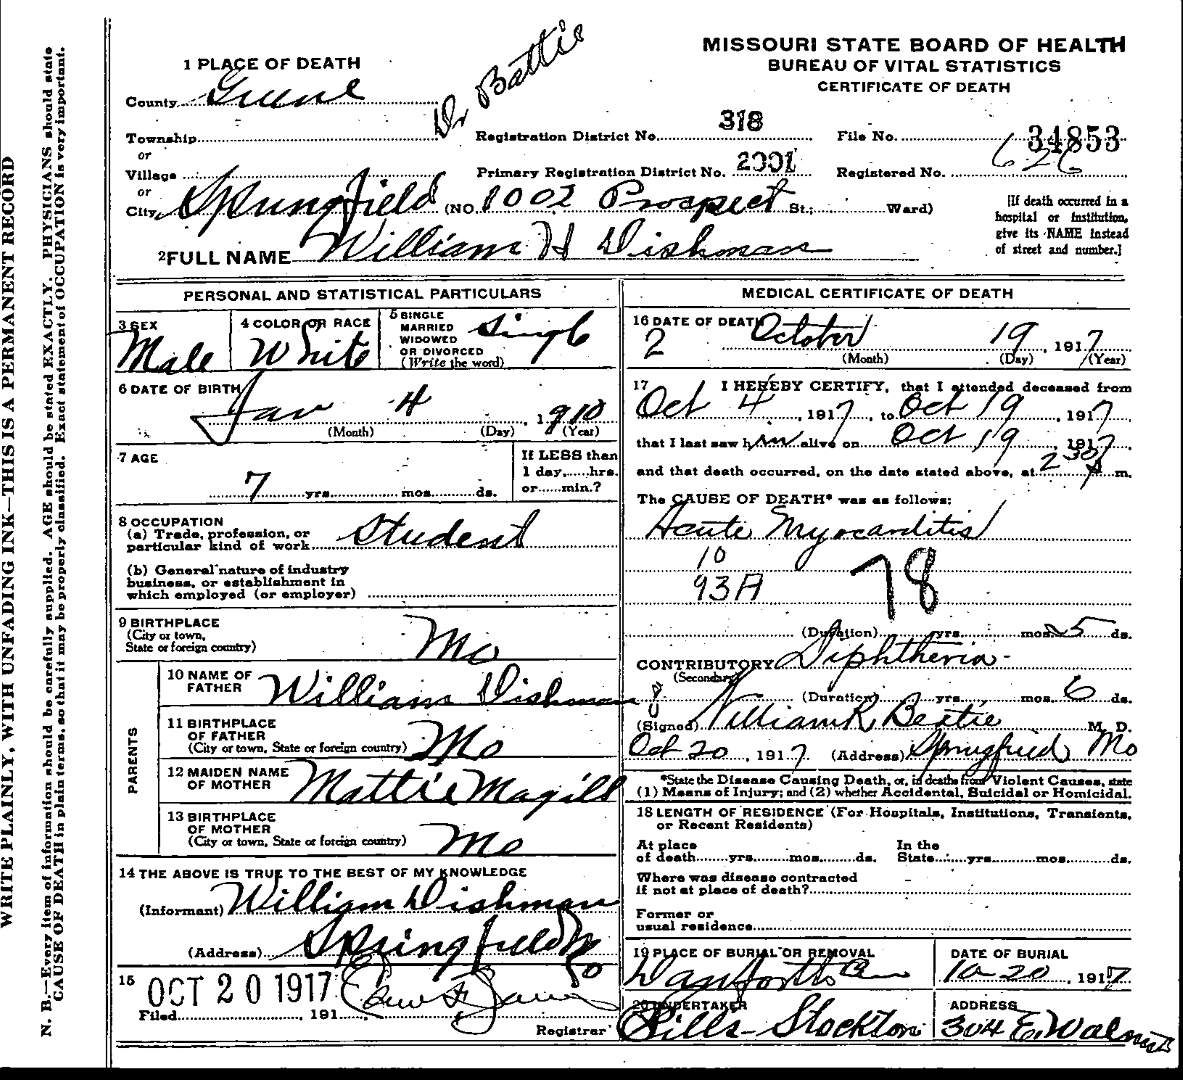 WRITE PLAINLY, WITH UNFADING INK—THIS IS A PERMANENT RECORD
N. B.—Every item of information should be carefully supplied. AGE should be stated EXACTLY. PHYSICIANS should state
CAUSE OF DEATH in plain terms, so that it may be properly classified. Exact statement of OCCUPATION is very important.
MISSOURI STATE BOARD OF HEALTH
BUREAU OF VITAL STATISTICS
CERTIFICATE OF DEATH
Dr Battie
1 PLACE OF DEATH
County Greene
Township
or
Village
or
City Springfield (NO. 1002 Prospect St.; Ward)
Registration District No. 318
File No. 34853
Primary Registration District No. 2001
Registered No. 626
[If death occurred in a
hospital or institution,
give its NAME instead
of street and number.]
2 FULL NAME William H Dishman
PERSONAL AND STATISTICAL PARTICULARS
3 SEX
Male
4 COLOR OR RACE
White
5 SINGLE
MARRIED
WIDOWED
OR DIVORCED
(Write the word)
Single
6 DATE OF BIRTH
Jan 4, 1910
(Month) (Day) (Year)
7 AGE
7 yrs. mos. ds.
If LESS than
1 day,......hrs.
or......min.?
8 OCCUPATION
(a) Trade, profession, or
particular kind of work Student
(b) General nature of industry
business, or establishment in
which employed (or employer)
9 BIRTHPLACE
(City or town,
State or foreign country)
Mo
PARENTS
10 NAME OF
FATHER William Dishman
11 BIRTHPLACE
OF FATHER
(City or town, State or foreign country) Mo
12 MAIDEN NAME
OF MOTHER Mattie Magill
13 BIRTHPLACE
OF MOTHER
(City or town, State or foreign country) Mo
14 THE ABOVE IS TRUE TO THE BEST OF MY KNOWLEDGE
(Informant) William Dishman
(Address) Springfield Mo
15
OCT 20 1917
Filed, 191
Registrar
MEDICAL CERTIFICATE OF DEATH
16 DATE OF DEATH
2 October 19, 1917
(Month) (Day) (Year)
17 I HEREBY CERTIFY, that I attended deceased from
Oct 4, 1917, to Oct 19, 1917
that I last saw him alive on Oct 19, 1917
and that death occurred, on the date stated above, at 2 30 A m.
The CAUSE OF DEATH* was as follows:
Acute Myocarditis
10
93A
78
(Duration) yrs. mos. 25 ds.
CONTRIBUTORY Diphtheria
(Secondary)
(Duration) yrs. mos. 6 ds.
(Signed) William R Beatie M. D.
Oct 20, 1917 (Address) Springfield Mo
*State the Disease Causing Death, or, in deaths from Violent Causes, state
(1) Means of Injury; and (2) whether Accidental, Suicidal or Homicidal.
18 LENGTH OF RESIDENCE (For Hospitals, Institutions, Transients,
or Recent Residents)
At place
of death......yrs......mos......ds.
In the
State......yrs......mos......ds.
Where was disease contracted
if not at place of death?
Former or
usual residence
19 PLACE OF BURIAL OR REMOVAL
Danforth
DATE OF BURIAL
10-20, 1917
20 UNDERTAKER
Stockton
ADDRESS
304 E. Walnut